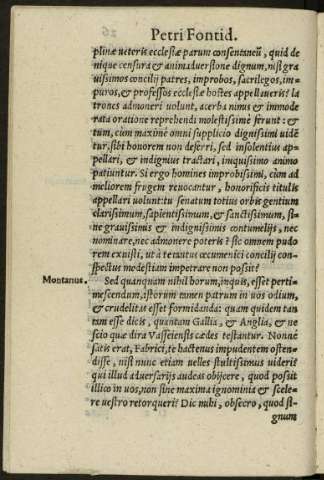 Petri Fontid.
plinæ ueteris ecclesiæ parum consentaneū, quid de
nique censura & animaduersione dignum, nisi gra
uissimos concilij patres, improbos, sacrilegos, im-
puros, & professos ecclesiæ hostes appellaueris? la
trones admoneri uolunt, acerba nimus & immode
rata oratione reprehendi molestissimè ferunt: &
tum, cùm maximè omni supplicio dignissimi uidē
tur, sibi honorem non deferri, sed insolentius ap-
pellari, & indignius tractari, iniquissimo animo
patiuntur. Si ergo homines improbissimi, cùm ad
meliorem frugem reuocantur, honorificis titulis
appellari uolunt: tu senatum totius orbis gentium
clarissimum, sapientissimum, & sanctissimum, si-
ne grauissimis & indignissimis contumelijs, nec
nominare, nec admonere poteris? sic omnem pudo
rem exuisti, ut à te tantus œcumenici concilij con-
spectus modestiam impetrare non possit?
Montanus. Sed quanquam nihil horum, inquis, esset perti-
mescendum, istorum tamen patrum in uos odium,
& crudelitas esset formidanda: quam quidem tan
tam esse dicis, quantam Gallia, & Anglia, & ne
scio quæ dira Vasseiensis cædes testantur. Nonnè
satis erat, Fabrici, te hactenus impudentem osten-
disse, nisi nunc etiam uelles stultissimus uideri?
qui illud aduersarijs audeas obijcere, quod possit
illico in uos, non sine maxima ignominia & scele-
re uestro retorqueri? Dic mihi, obsecro, quod si-
gnum